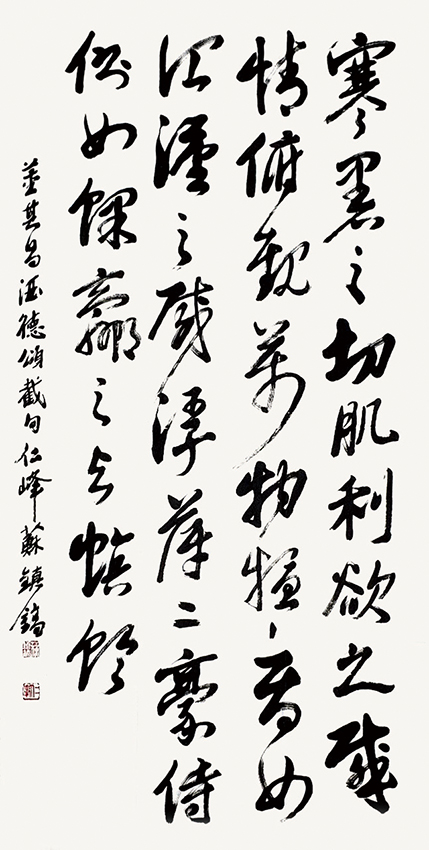 寒暑之切肌利欲之感
情俯觀萬物擾〻焉如
江漢之載浮萍二豪侍
側如蜾蠃之与螟蛉
董其昌酒德頌截句仁峰蘇鎮鎬